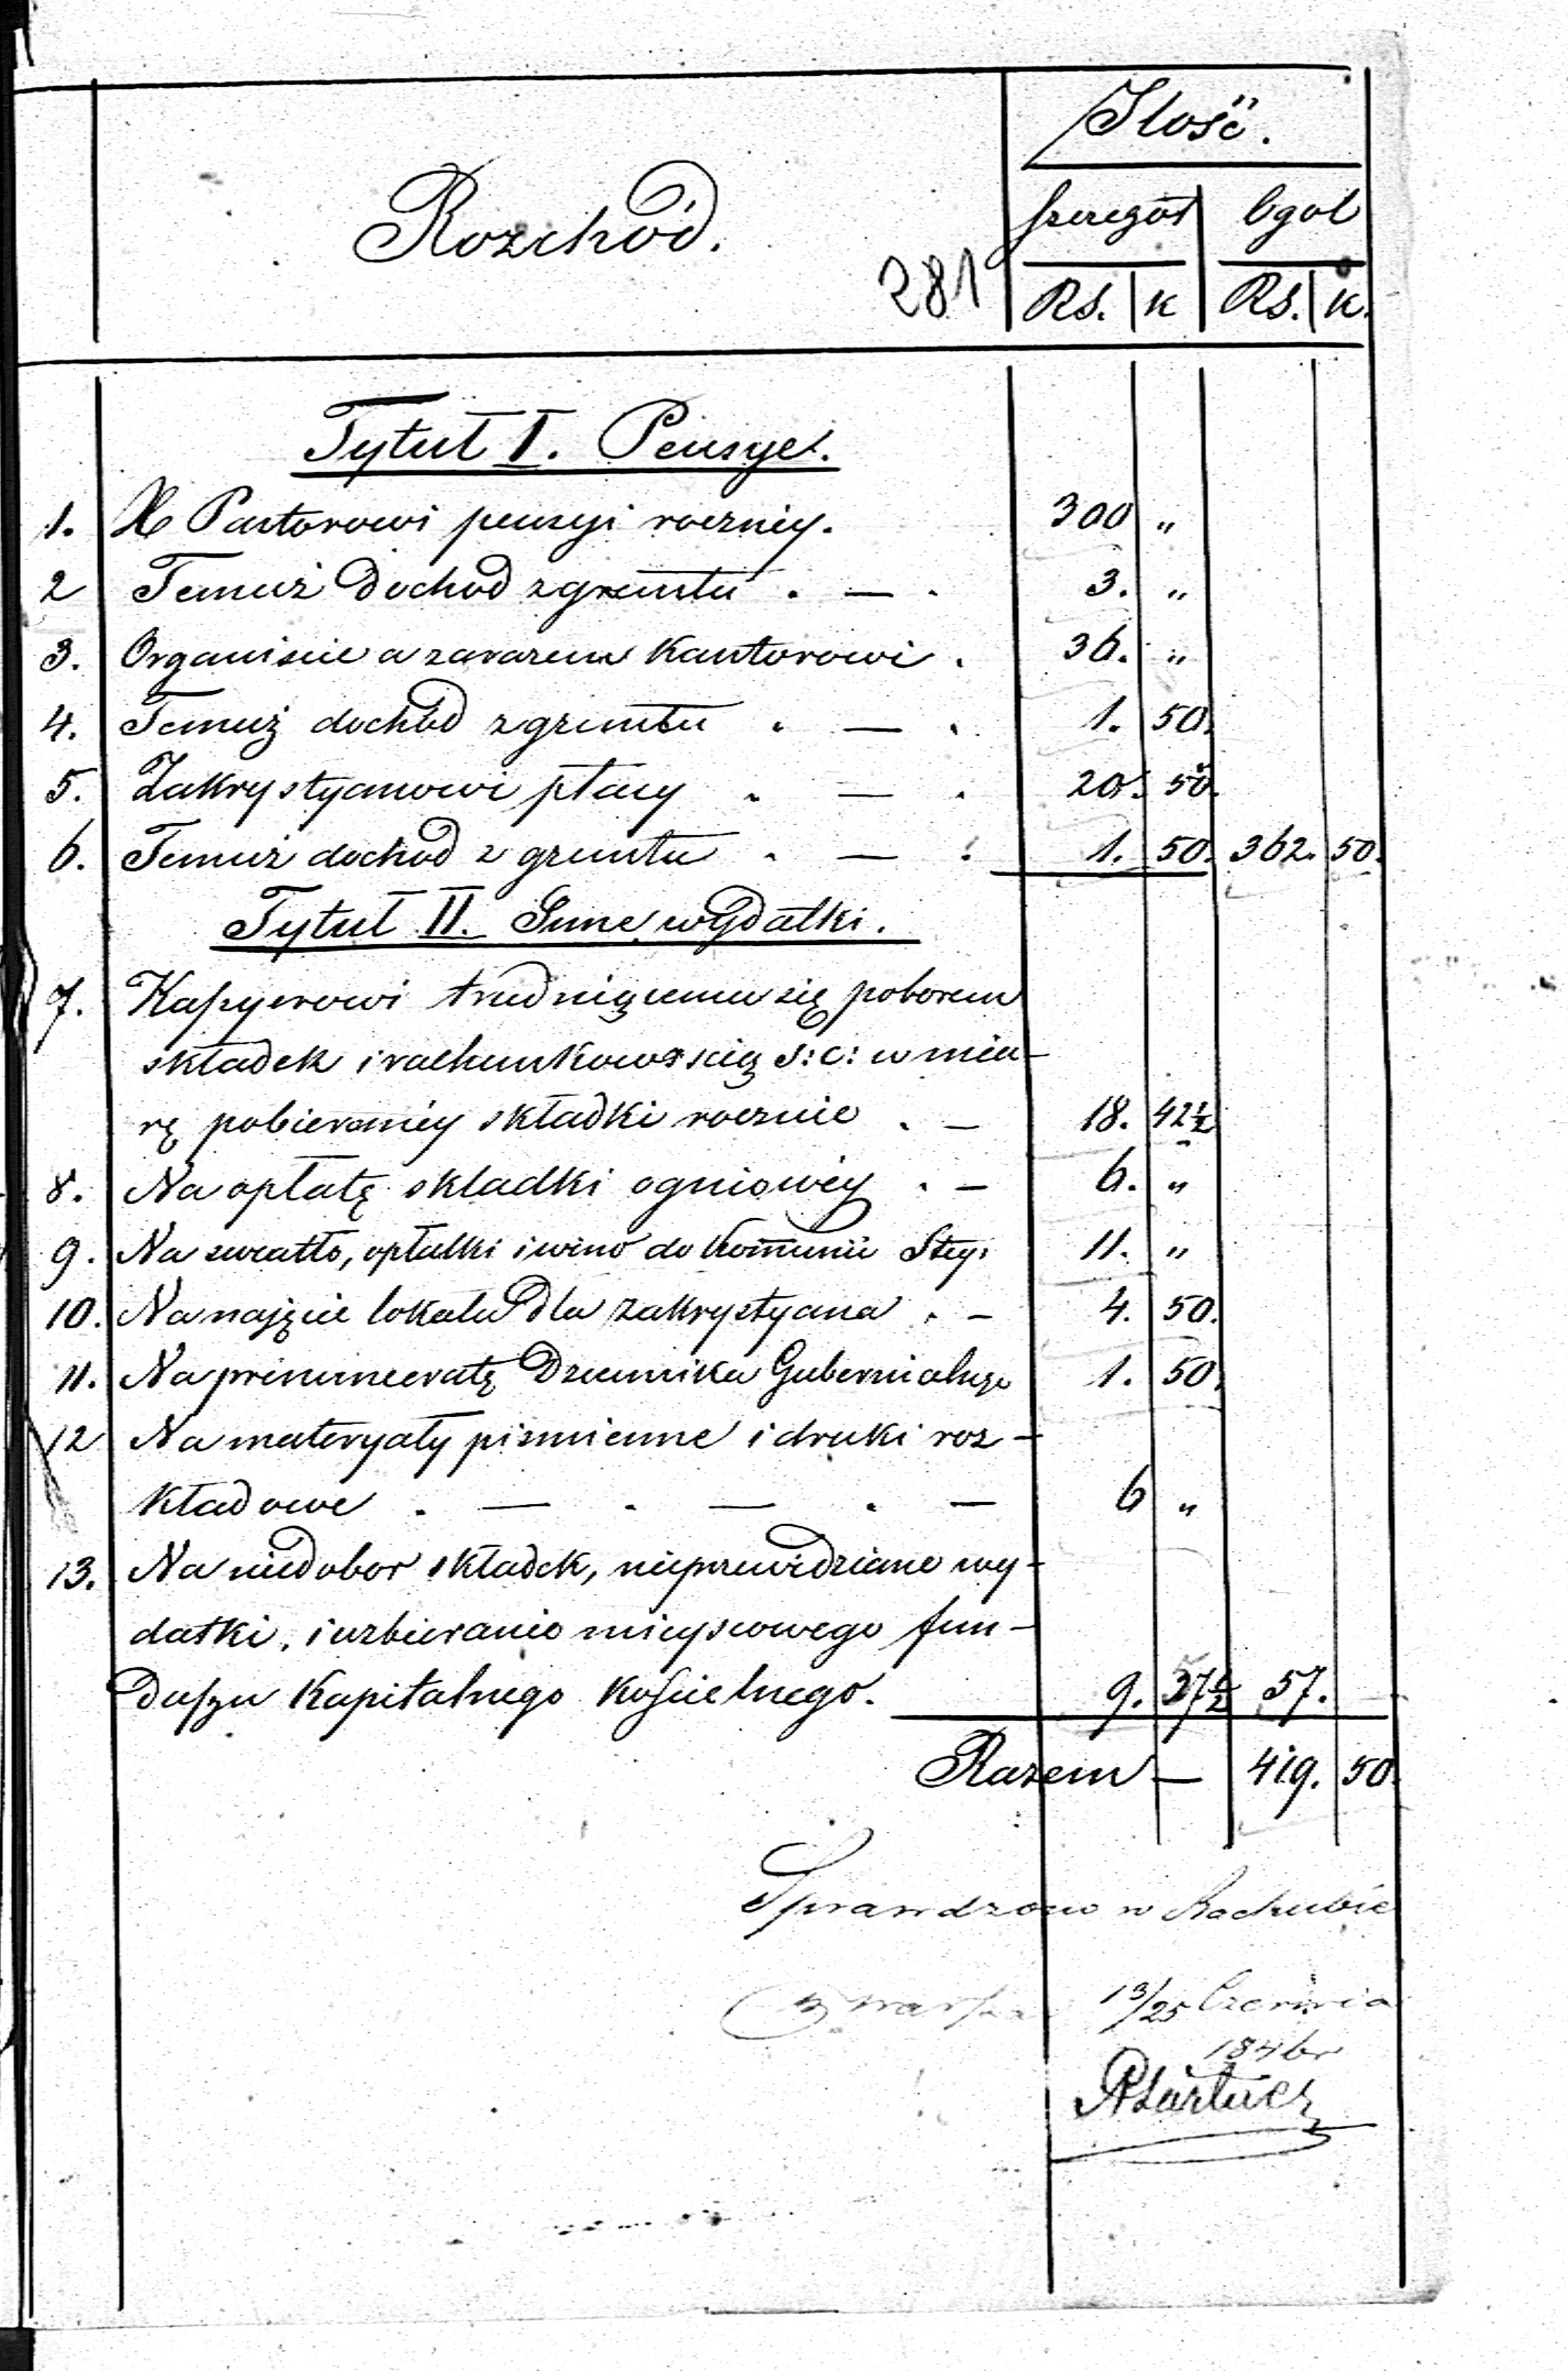 Ilość.
Rozchód.
szczegół ogół
281
Rs. k Rs. k.
Tytuł I. Pensye.
1. X Pastorowi pensyi roczniey. 300 "
2 Temuż dochod z gruntu . — . 3. "
3. Organiście a zarazem Kantorowi . 36. "
4. Temuż dochod z gruntu . — . 1. 50.
5. Zakrystyanowi płacy . — . 20. 50.
6. Temuż dochod z gruntu . — . 1. 50. 362. 50.
Tytuł II. Inne wydatki.
7. Kassyerowi trudniącemu się poborem
składek i rachunkowością S: C: w mia-
rę pobieraniey składki rocznie . — 18. 42½
8. Na opłatę składki ogniowéy . — 6. "
9. Na swiatło, opłatki i wino do Komunii Stey: 11. "
10. Na najęcie lokalu dla zakrystyana . — 4. 50.
11. Na prenumeratę Dziennika Gubernialnego 1. 50.
12 Na materyały piśmienne i druki roz-
kładowe . — . — . — 6 "
13. Na niedobor składek, nieprzewidziane wy-
datki, i uzbieranie mieyscowego fun-
duszu Kapitalnego Kościelnego. 9. 57½ 57.
Razem — 419. 50.
Sprawdzono w Rachubie
13/25 Czerwca
1846r